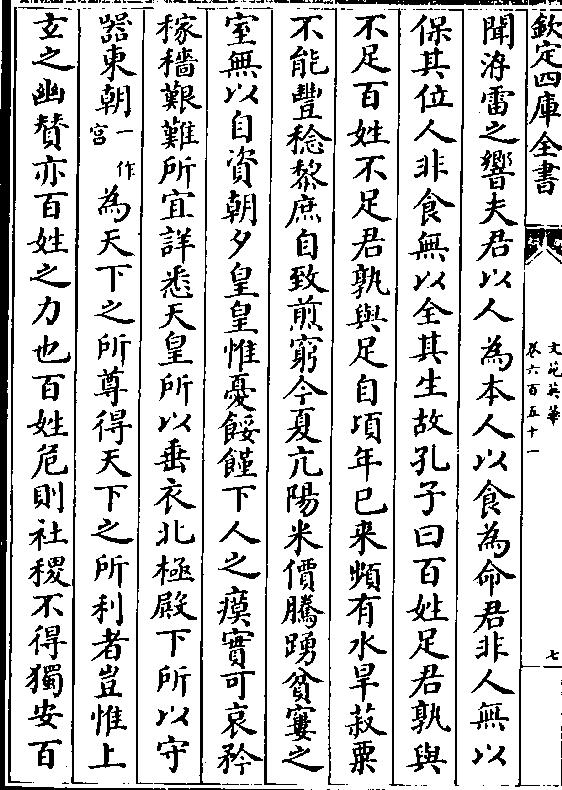 欽定四庫全書
文苑英華
卷六百五十一
七
聞洊雷之響夫君以人為本人以食為命君非人無以
保其位人非食無以全其生故孔子曰百姓足君孰與
不足百姓不足君孰與足自頃年已来頻有水旱菽粟
不能豐稔黎庶自致煎窮今夏亢陽米價騰踴貧窶之
室無以自資朝夕皇皇惟憂餒饉下人之瘼實可哀矜
稼穡艱難所宜詳悉天皇所以垂衣北極殿下所以守
器東朝一作宮為天下之所尊得天下之所利者豈惟上
玄之幽贊亦百姓之力也百姓危則社稷不得獨安百